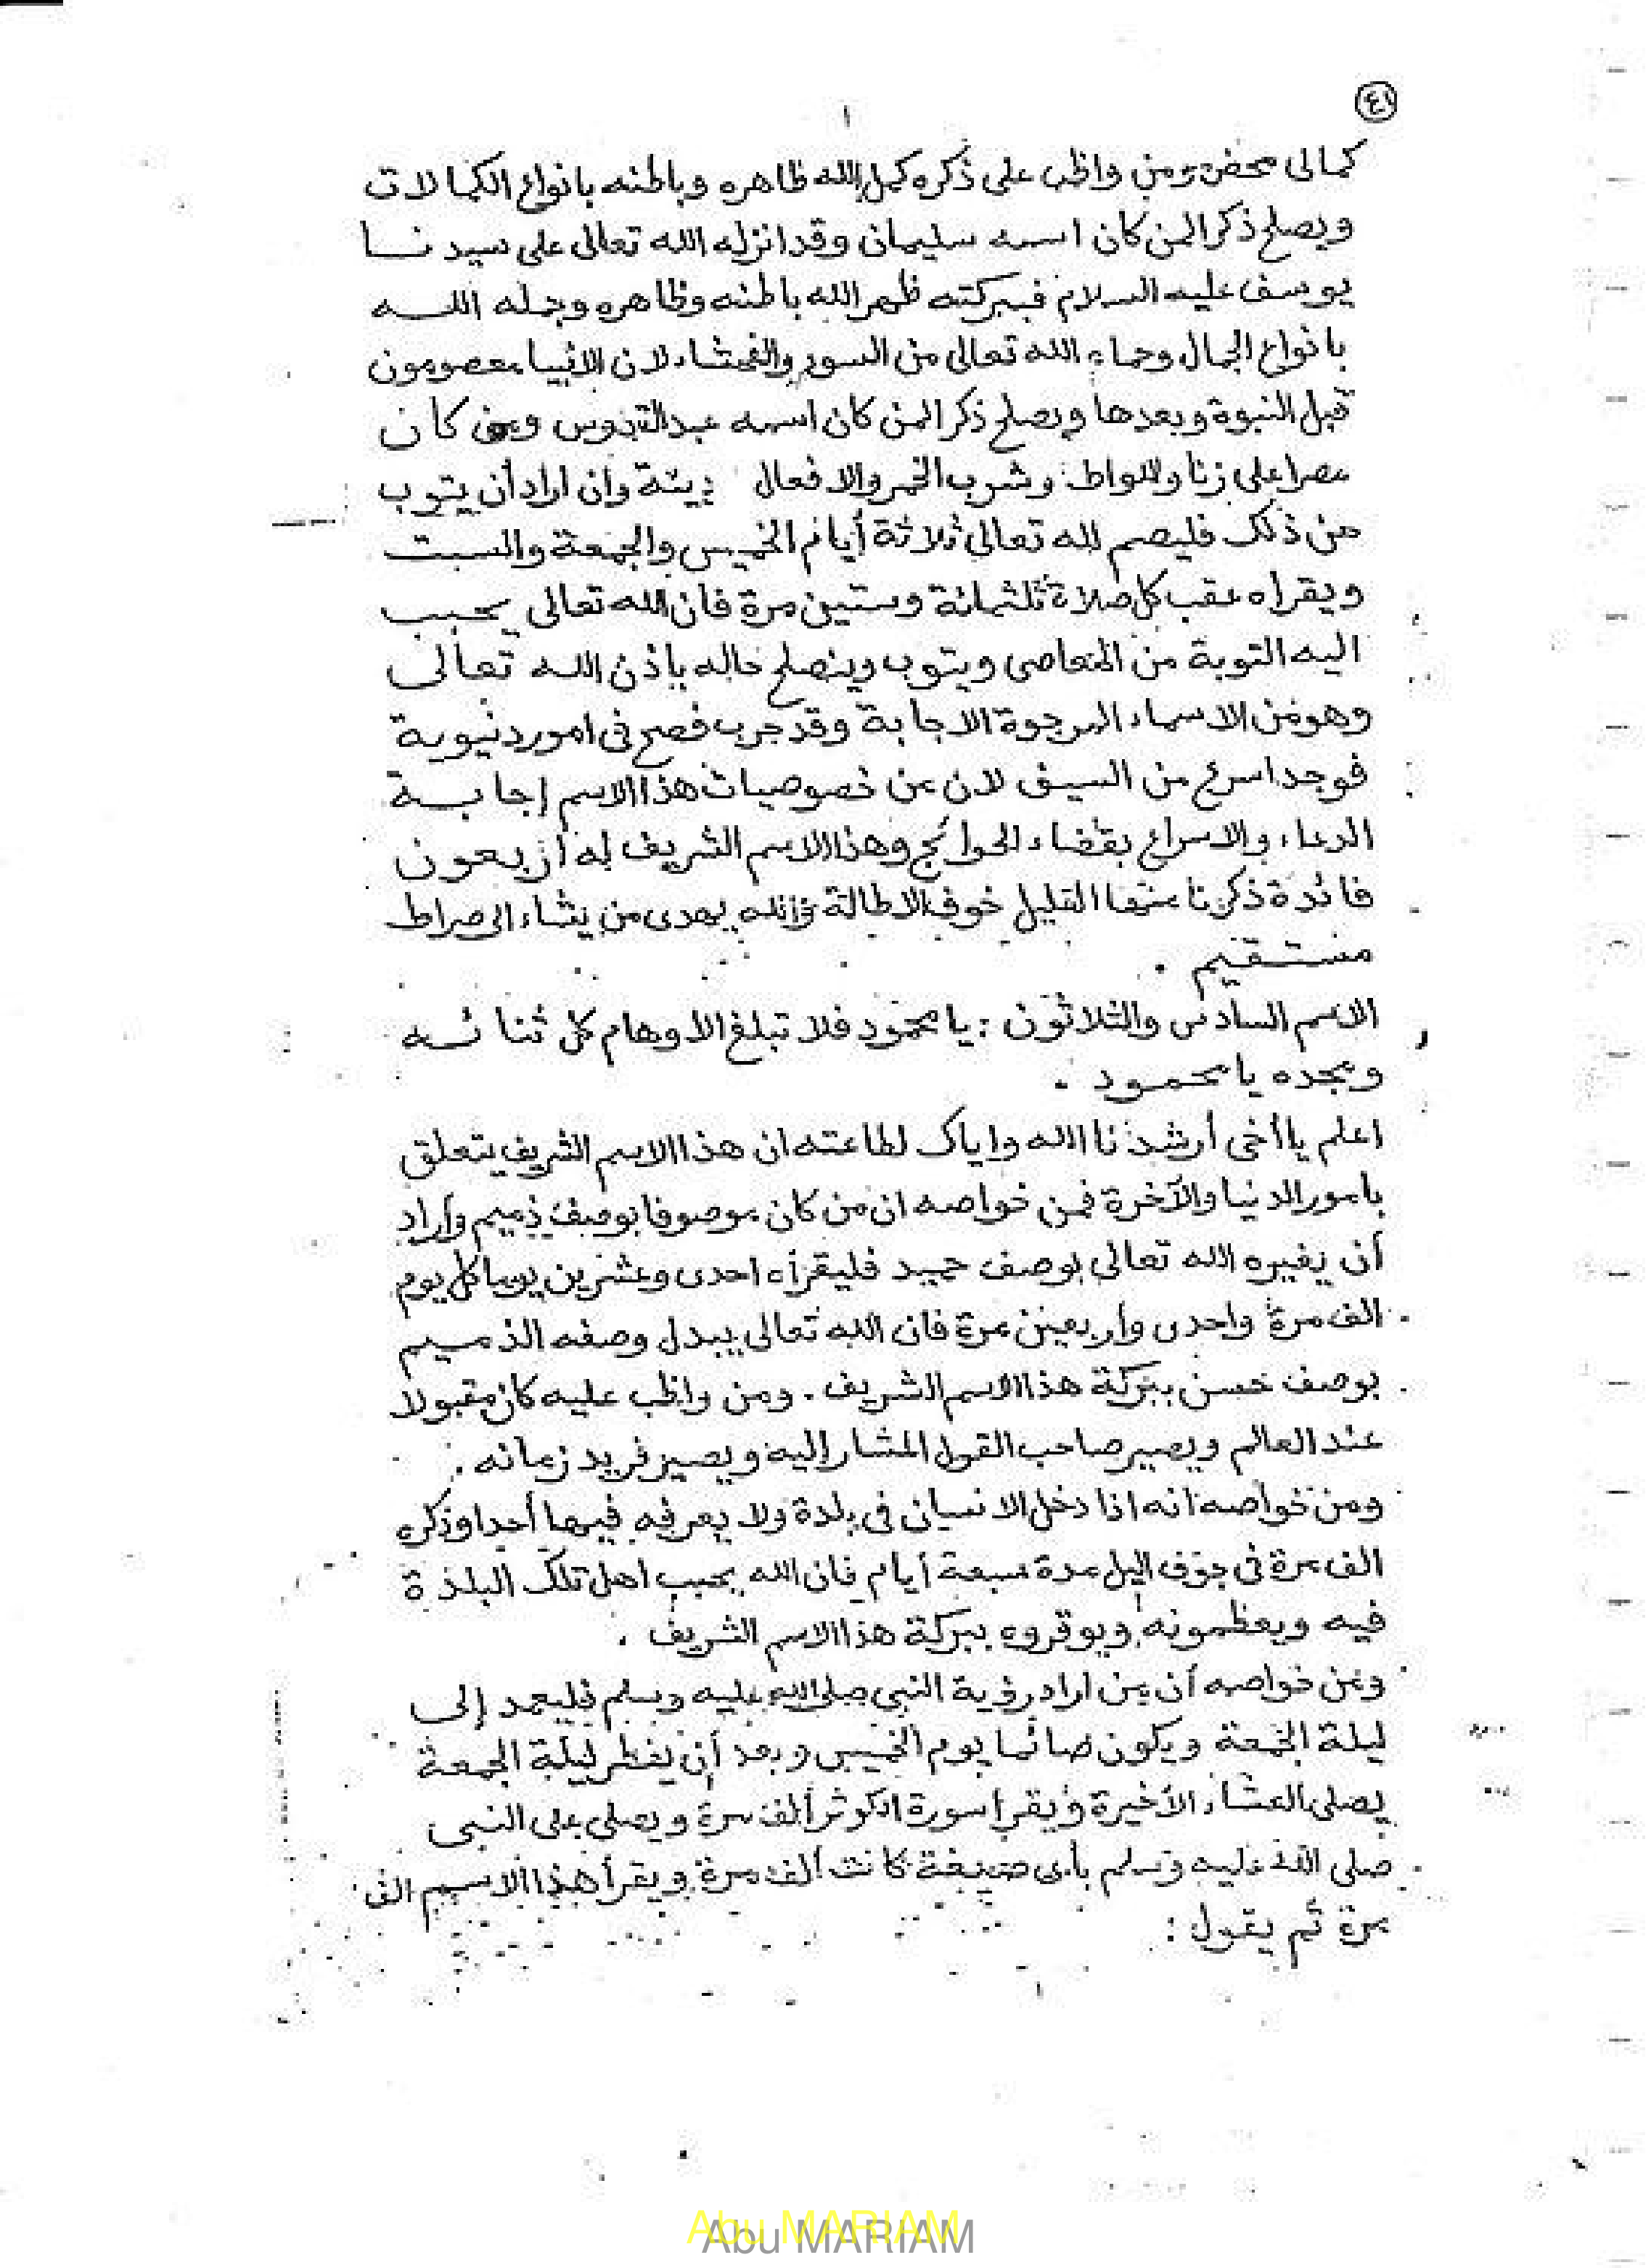 ٤١
كمالى محض ومن واظب على ذكره كمل الله ظاهره وباطنه بانواع الكمالات
ويصلح ذكرا لمن كان اسمه سليمان وقد انزله الله تعالى على سيدنا
يوسف عليه السلام فببركته طهر الله باطنه وظاهره وجمله اللـــه
بانواع الجمال وحماه الله تعالى من السوء والفحشاء لان الانبياء معصومون
قبل النبوة وبعدها ويصلح ذكرا لمن كان اسمه عبدالقدوس ومن كان
مصرا على زنا واللواط وشرب الخمر والافعال وان اراد أن يتوب
من ذلك فليصم لله تعالى ثلاثة أيام الخميس والجمعة والسبت
ويقراه عقب كل صلاة ثلثمائة وستين مرة فان الله تعالى يحبب
اليه التوبة من المعاصى ويتوب وينصلح حاله باذن اللـه تعالى
وهو من الاسماء المرجوة الاجابة وقد جرب فصح فى امور دنيوية
فوجد اسرع من السيف لان من خصوصيات هذا الاسم إجابـــة
الدعاء والاسراع بقضاء الحوائج وهذا الاسم الشريف له أربعون
فائدة ذكرنا منها القليل خوف الاطالة والله يهدى من يشاء الى صراط
مستقيم .
الاسم السادس والثلاثون : يا محمود فلا تبلغ الأوهام كل ثنائـه
ومجده يا محمود .
اعلم يا أخى أرشدنا الله واياك لطاعته ان هذا الاسم الشريف يتعلق
بامور الدنيا والآخرة فمن خواصه ان من كان موصوفا بوصف ذميم وأراد
أن يغيره الله تعالى بوصف حميد فليقرأه احدى وعشرين يوما كل يوم
الف مرة واحدى وأربعين مرة فان الله تعالى يبدل وصفه الذميم
بوصف حسن ببركة هذا الاسم الشريف . ومن واظب عليه كان مقبولا
عند العالم ويصير صاحب القول المشار إليه ويصير فريد زمانه .
ومن خواصه انه اذا دخل الانسان فى بلدة ولا يعرفه فيها أحدا وذكره
الف مرة فى جوف اليل مدة سبعة أيام فان الله يحبب اهل تلك البلدة
فيه ويعظمونه ويوقروه ببركة هذا الاسم الشريف .
ومن خواصه أن من اراد رؤية النبى صلى الله عليه وسلم فليعمد إلى
ليلة الجمعة ويكون صائما يوم الخميس وبعد أن يفطر ليلة الجمعة
يصلى العشاء الأخيرة ويقرا سورة الكوثر ألف مرة ويصلى على النبى
صلى الله عليه وسلم بأى صيغة كانت ألف مرة ويقرأ هذا الاسم الف
مرة ثم يقول :
Abu MARIAM